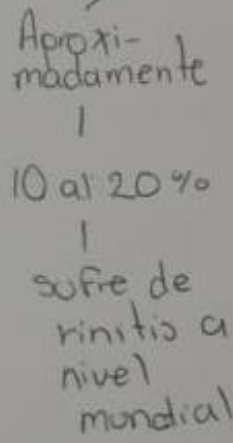 Aproxi-
madamente
10 al 20%
sufre de
rinitis a
nivel
mundial